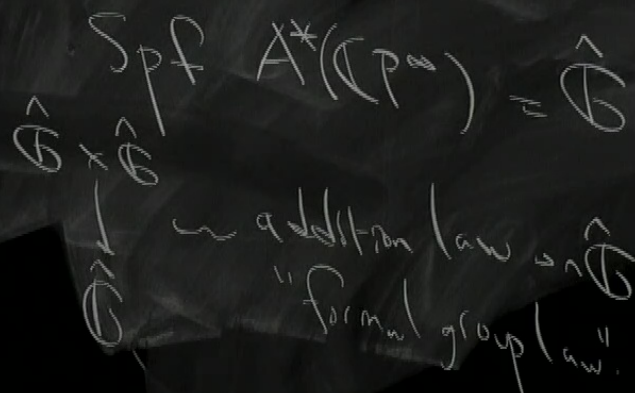 Spf A*(ℂP^∞) = Ĝ
Ĝ × Ĝ
↓ ~ addition law on Ĝ
Ĝ "formal group law".